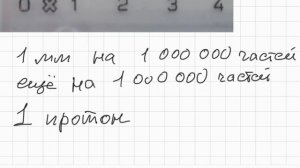 0 1 2 3 4
1 мм на 1 000 000 частей
ещё на 1 000 000 частей
1 протон